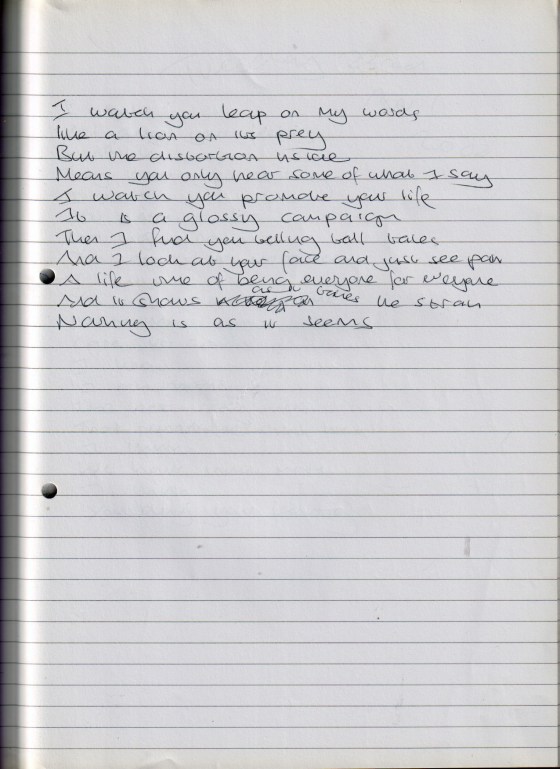 I watch you leap on my words
like a lion on its prey
But the distortion inside
Means you only hear some of what I say
I watch you promote your life
It is a glossy campaign
Then I find you telling tall tales
And I look at your face and just see pain
A life time of being everyone for everyone
And it shows as it takes the strain
Nothing is as it seems